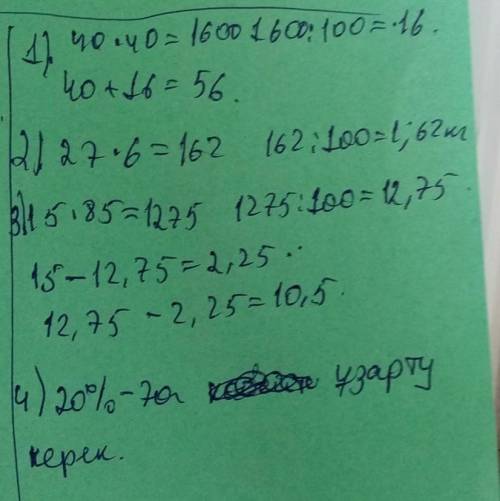 1). 40 · 40 = 1600 1600 : 100 = 16.
40 + 16 = 56.
2) 27 · 6 = 162 162 : 100 = 1,62 кг
3) 15 · 85 = 1275 1275 : 100 = 12,75.
15 - 12,75 = 2,25.
12,75 - 2,25 = 10,5.
4) 20% - ұзарту
керек.